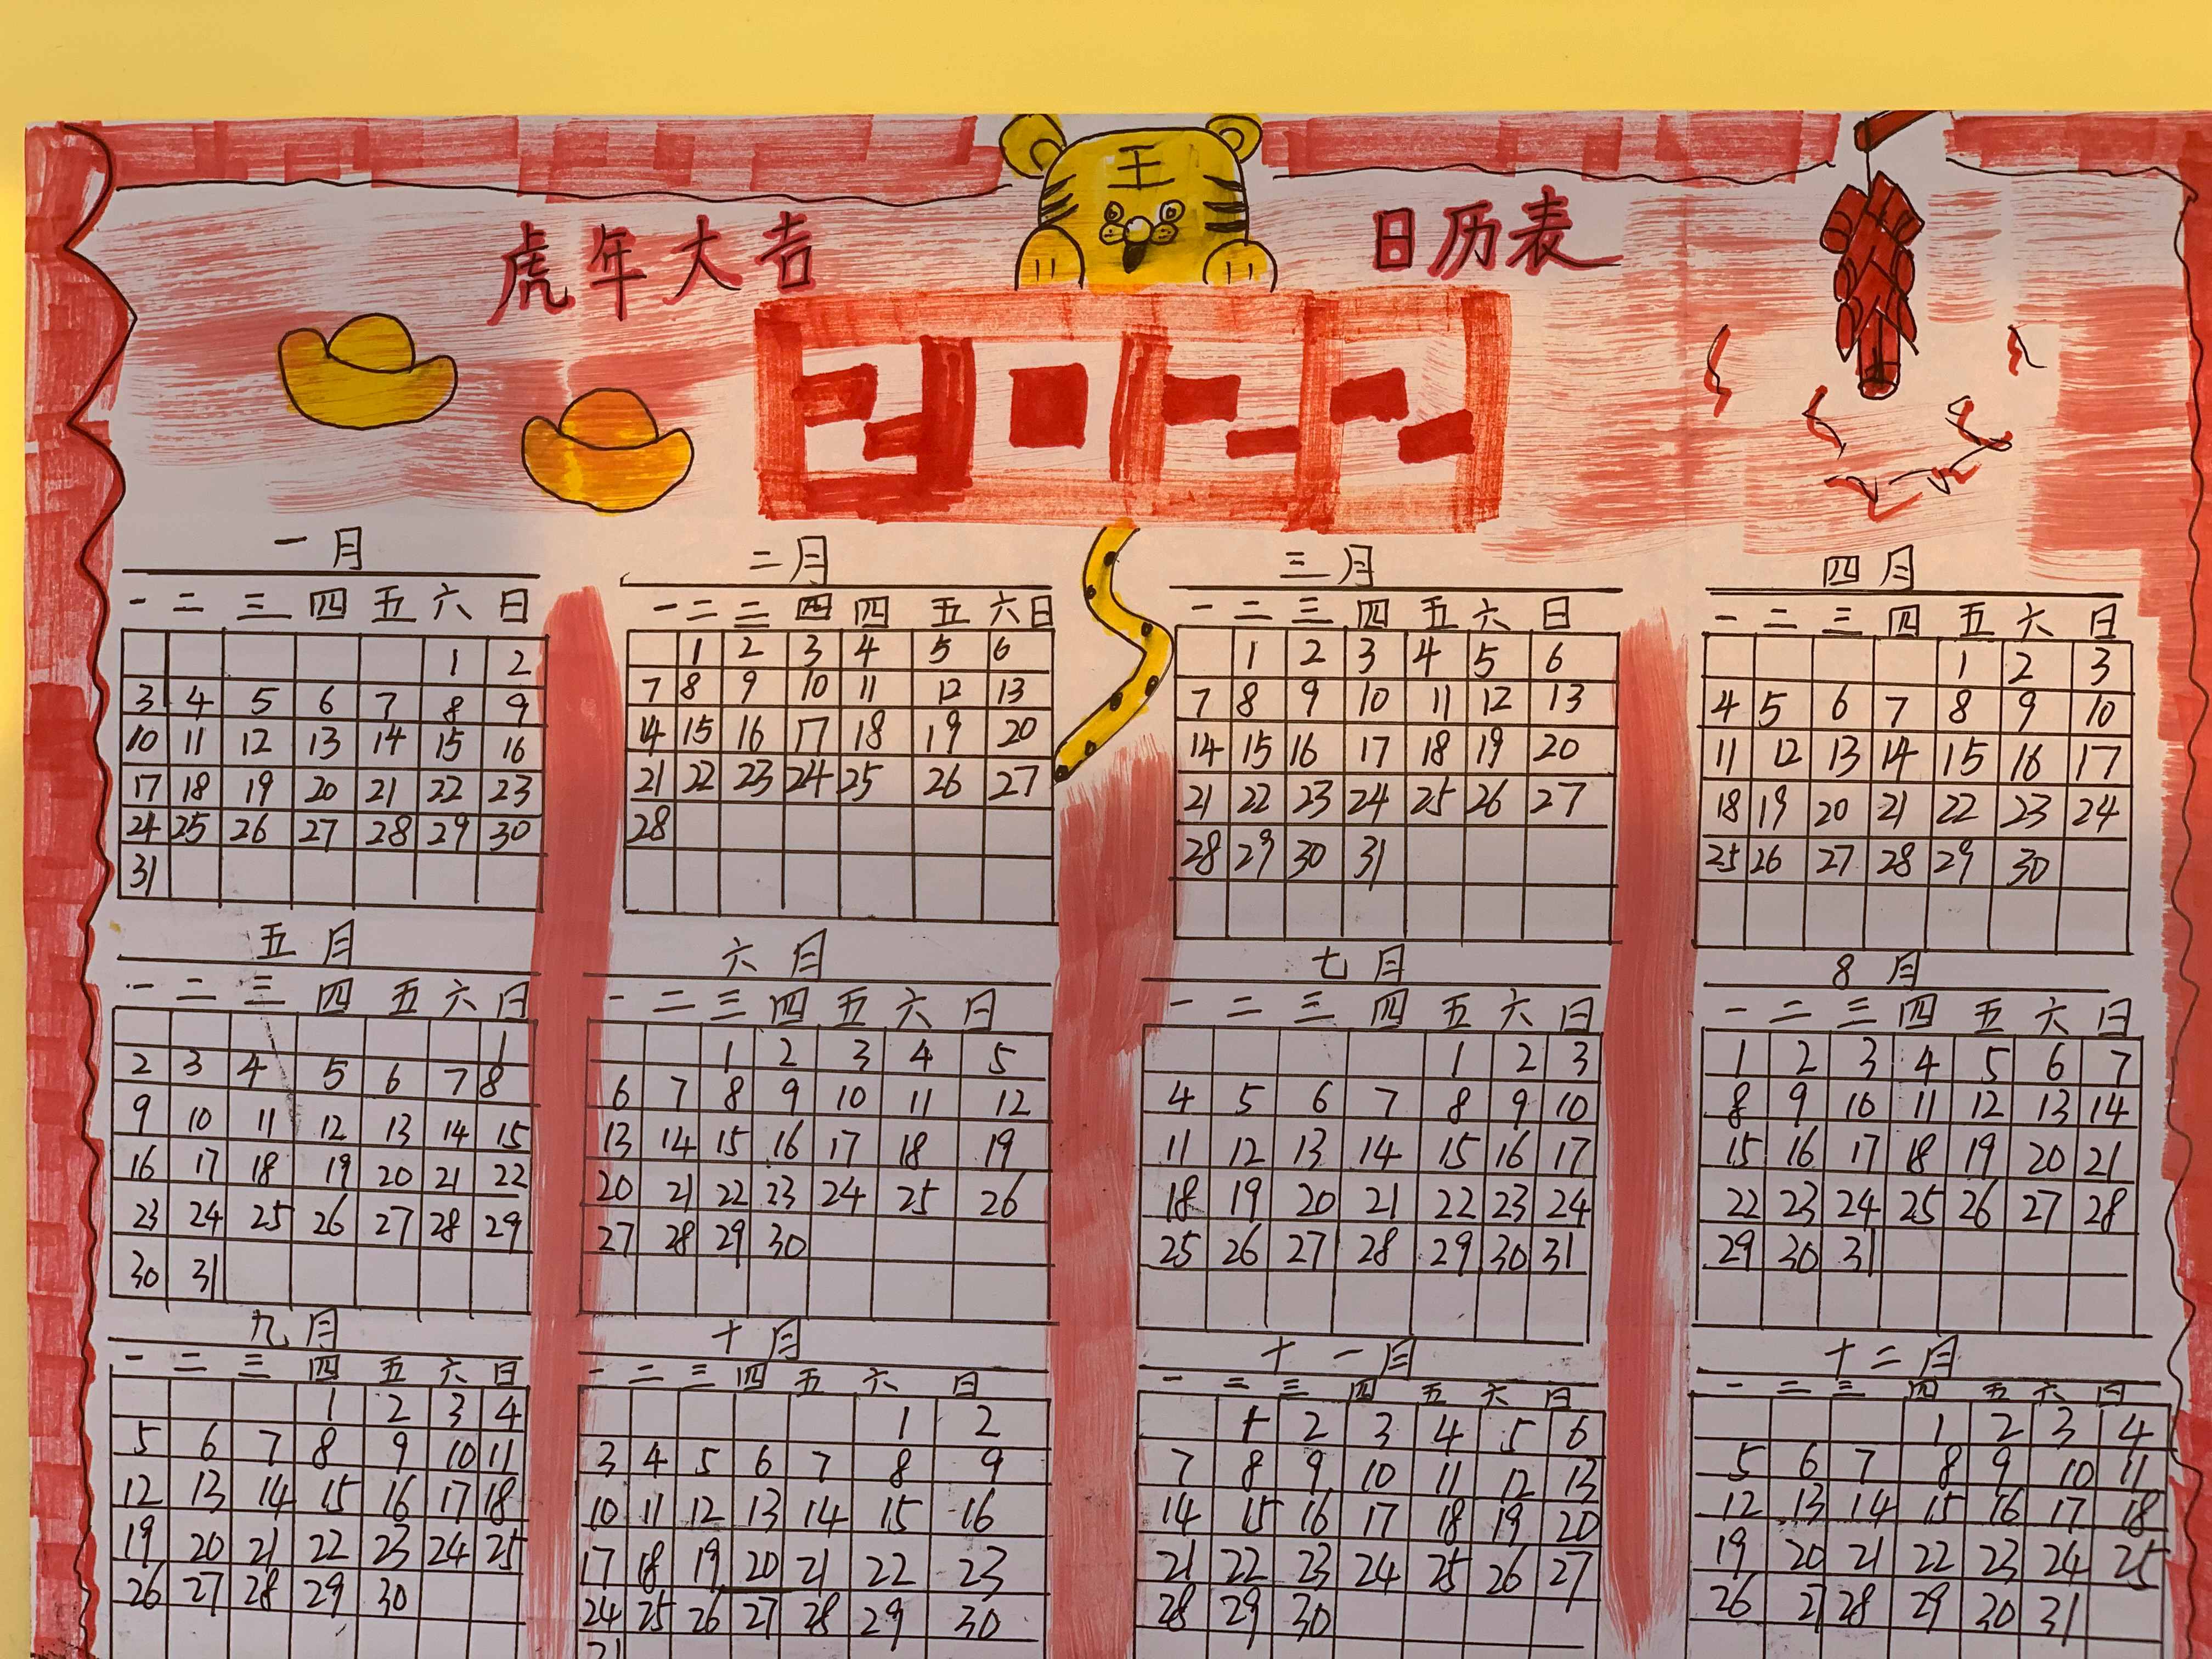 王
虎年大吉 日历表
2022
一月
一 二 三 四 五 六 日
1 2
3 4 5 6 7 8 9
10 11 12 13 14 15 16
17 18 19 20 21 22 23
24 25 26 27 28 29 30
31
二月
一 二 二 四 四 五 六 日
1 2 3 4 5 6
7 8 9 10 11 12 13
14 15 16 17 18 19 20
21 22 23 24 25 26 27
28
三月
一 二 三 四 五 六 日
1 2 3 4 5 6
7 8 9 10 11 12 13
14 15 16 17 18 19 20
21 22 23 24 25 26 27
28 29 30 31
四月
一 二 三 四 五 六 日
1 2 3
4 5 6 7 8 9 10
11 12 13 14 15 16 17
18 19 20 21 22 23 24
25 26 27 28 29 30
五月
一 二 三 四 五 六 日
1
2 3 4 5 6 7 8
9 10 11 12 13 14 15
16 17 18 19 20 21 22
23 24 25 26 27 28 29
30 31
六月
一 二 三 四 五 六 日
1 2 3 4 5
6 7 8 9 10 11 12
13 14 15 16 17 18 19
20 21 22 23 24 25 26
27 28 29 30
七月
一 二 三 四 五 六 日
1 2 3
4 5 6 7 8 9 10
11 12 13 14 15 16 17
18 19 20 21 22 23 24
25 26 27 28 29 30 31
8月
一 二 三 四 五 六 日
1 2 3 4 5 6 7
8 9 10 11 12 13 14
15 16 17 18 19 20 21
22 23 24 25 26 27 28
29 30 31
九月
一 二 三 四 五 六 日
1 2 3 4
5 6 7 8 9 10 11
12 13 14 15 16 17 18
19 20 21 22 23 24 25
26 27 28 29 30
十月
一 二 三 四 五 六 日
1 2
3 4 5 6 7 8 9
10 11 12 13 14 15 16
17 18 19 20 21 22 23
24 25 26 27 28 29 30
31
十一月
一 二 三 四 五 六 日
1 2 3 4 5 6
7 8 9 10 11 12 13
14 15 16 17 18 19 20
21 22 23 24 25 26 27
28 29 30
十二月
一 二 三 四 五 六 日
1 2 3 4
5 6 7 8 9 10 11
12 13 14 15 16 17 18
19 20 21 22 23 24 25
26 27 28 29 30 31